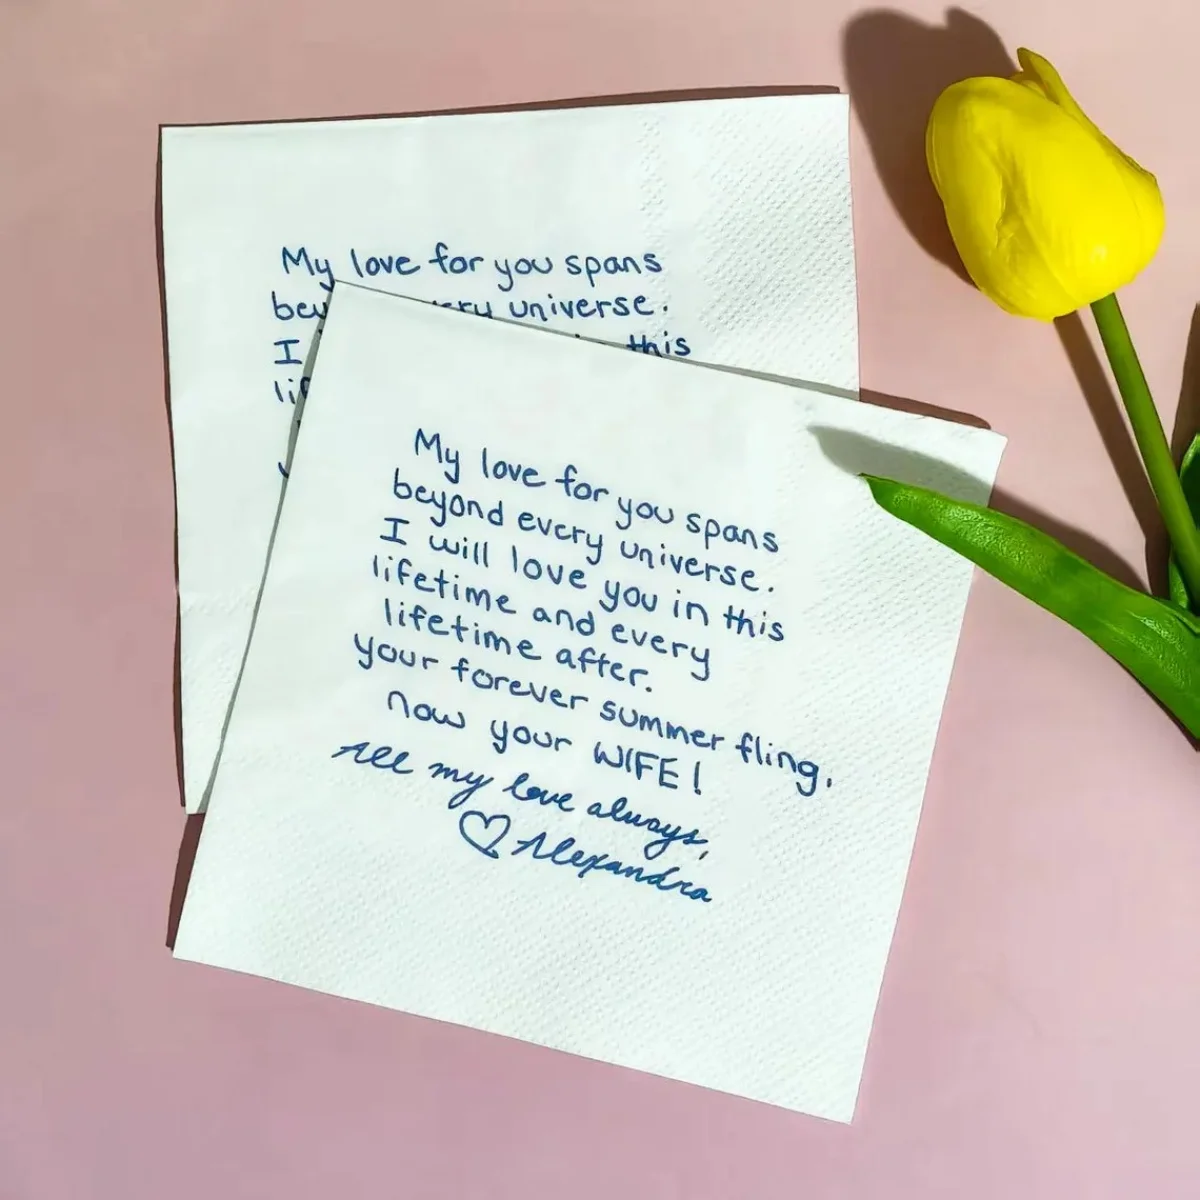 My love for you spans
universe.
I this
My love for you spans
beyond every universe.
I will love you in this
lifetime and every
lifetime after.
your forever summer fling,
now your WIFE!
All my love always,
♡ Alexandra